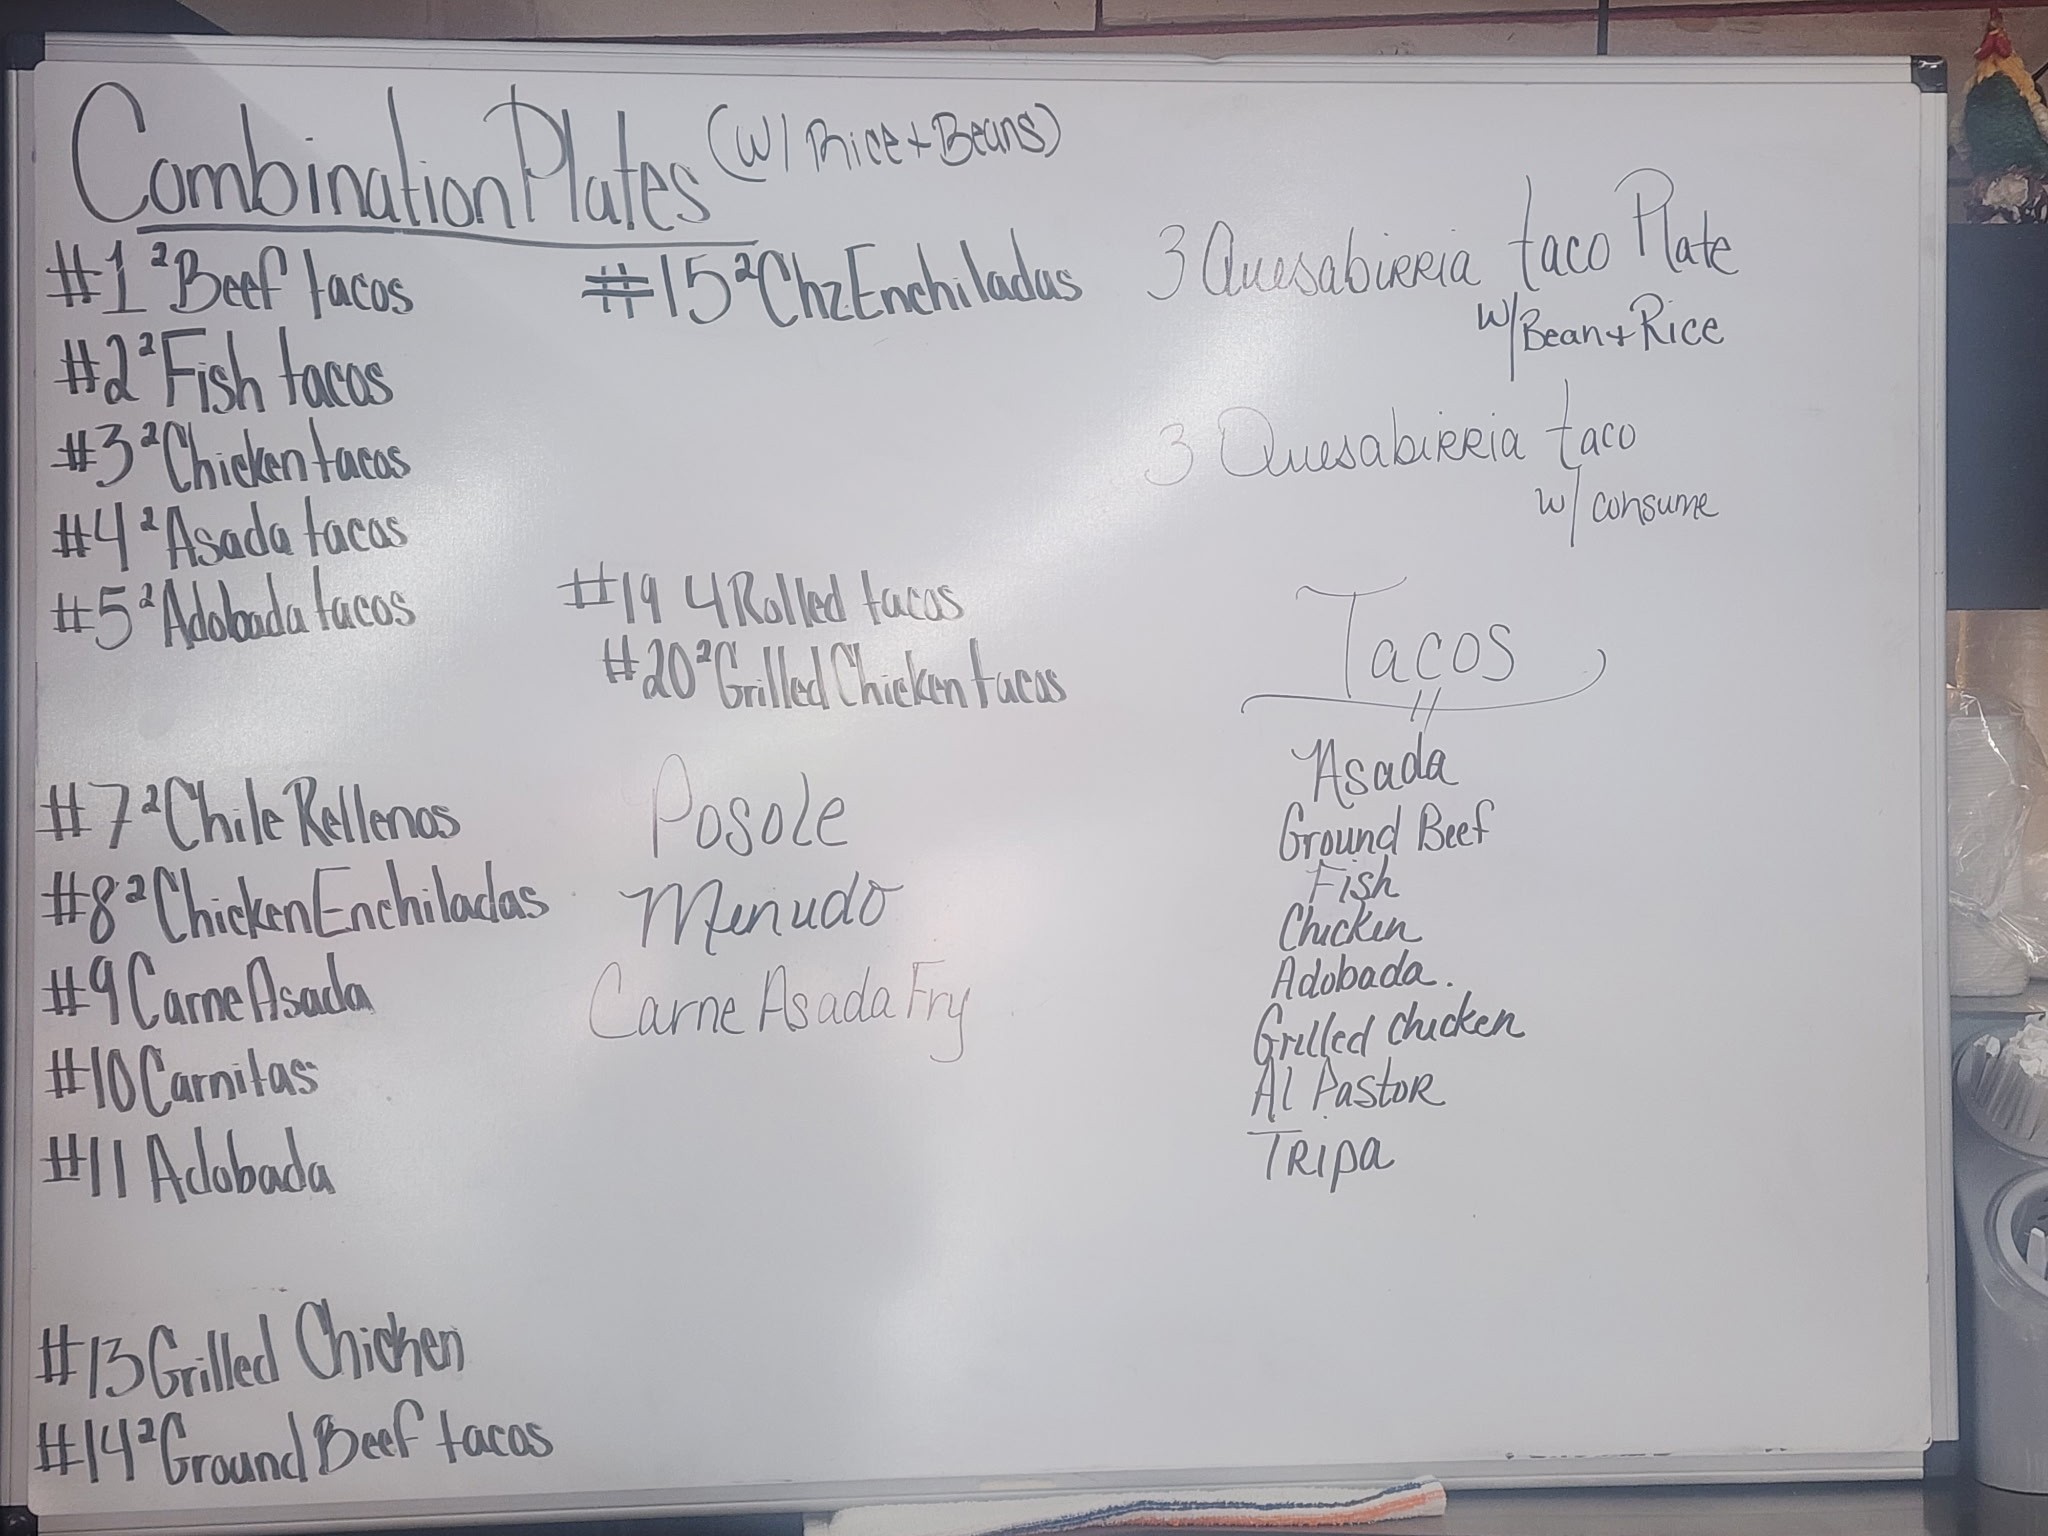 Combination Plates (w/ Rice + Beans)
#1 2 Beef tacos
#2 2 Fish tacos
#3 2 Chicken tacos
#4 2 Asada tacos
#5 2 Adobada tacos
#7 2 Chile Rellenos
#8 2 Chicken Enchiladas
#9 Carne Asada
#10 Carnitas
#11 Adobada
#13 Grilled Chicken
#14 2 Ground Beef tacos
#15 2 Chz Enchiladas
#19 4 Rolled tacos
#20 2 Grilled Chicken tacos
Posole
Menudo
Carne Asada Fry
3 Quesabirria taco Plate
w/ Bean + Rice
3 Quesabirria taco
w/ consume
Tacos
Asada
Ground Beef
Fish
Chicken
Adobada.
Grilled chicken
Al Pastor
Tripa